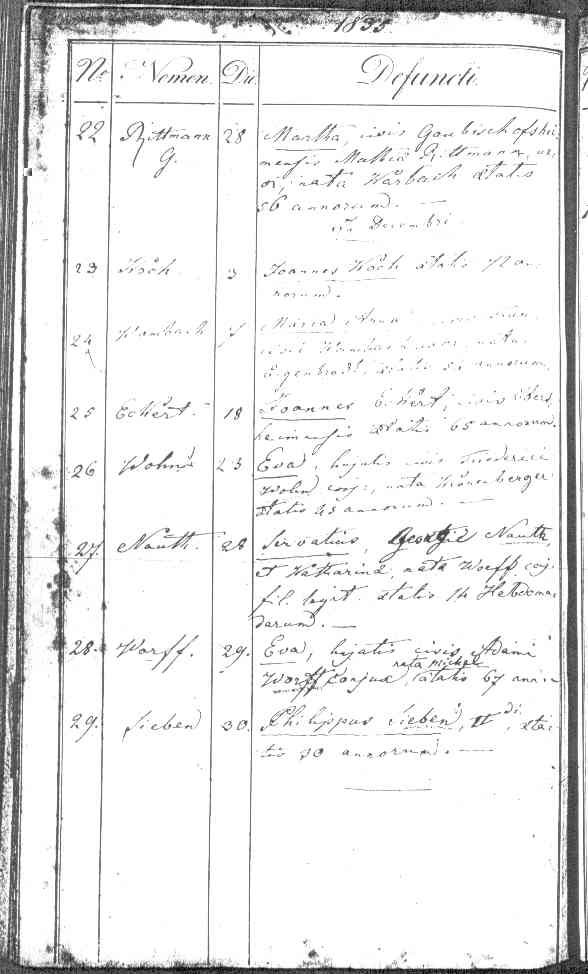 1835
No. Nomen. Die Defuncti.
22 Rittmann G. 28 Martha, civis Gaubischofshei-
mensis Mathiæ Rittmann, ux-
or, nata Warbach ætatis
56 annorum. —
in Decembri.
23 Koch. 3 Joannes Koch ætatis 72 an-
norum.
24 Wambach 7 Maria Anna civis Fran-
cisci Wambach uxor, nata
Egenbrodt, ætatis 51 annorum.
25 Eckert. 18 Joannes Eckert, civis Ebers-
heimensis ætatis 65 annorum.
26 Wohn 23 Eva, hujatis civis Friederici
Wohn conj:, nata Kronenberger
ætatis 45 annorum. —
27. Nauth. 28 Servatius, Georgii Nauth,
et Katharinæ, nata Worff conj.
fil. legit. ætatis 14 Hebdoma-
darum. —
28. Worff. 29. Eva, hujatis civis Adami
nata Michel
Worff conjux, ætatis 67 ann:
29. Sieben 30. Philippus Sieben, II di, æta-
tis 30 annorum. —